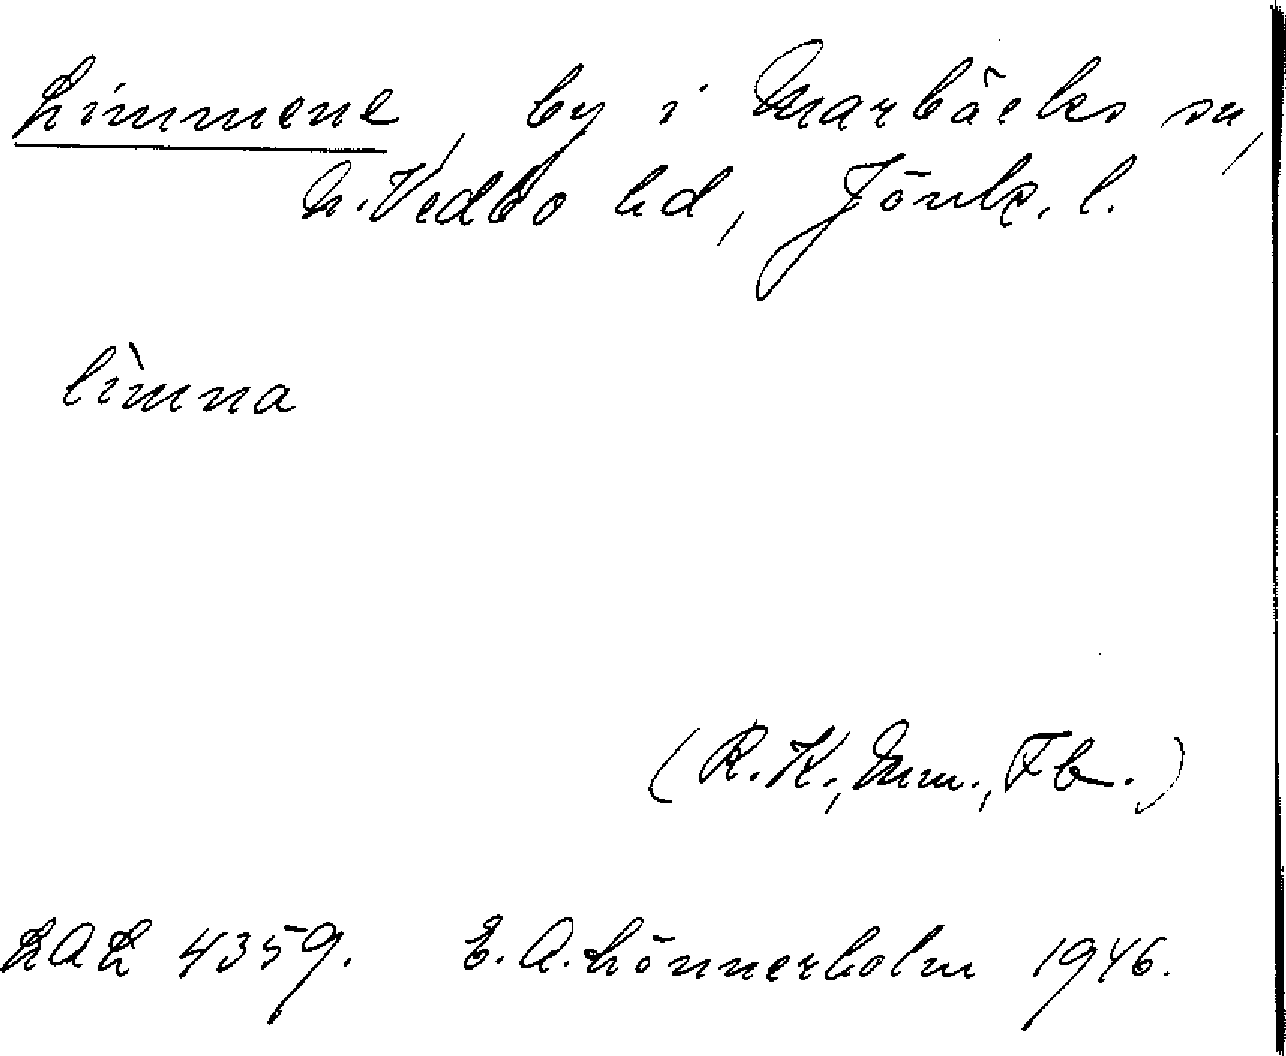 Limmene, by i Marbäcks sn,
N. Vedbo hd, Jönk. l.
lìmna
(R.K., Mm., Fb.)
LAL 4359. E. A. Lönnerholm 1946.